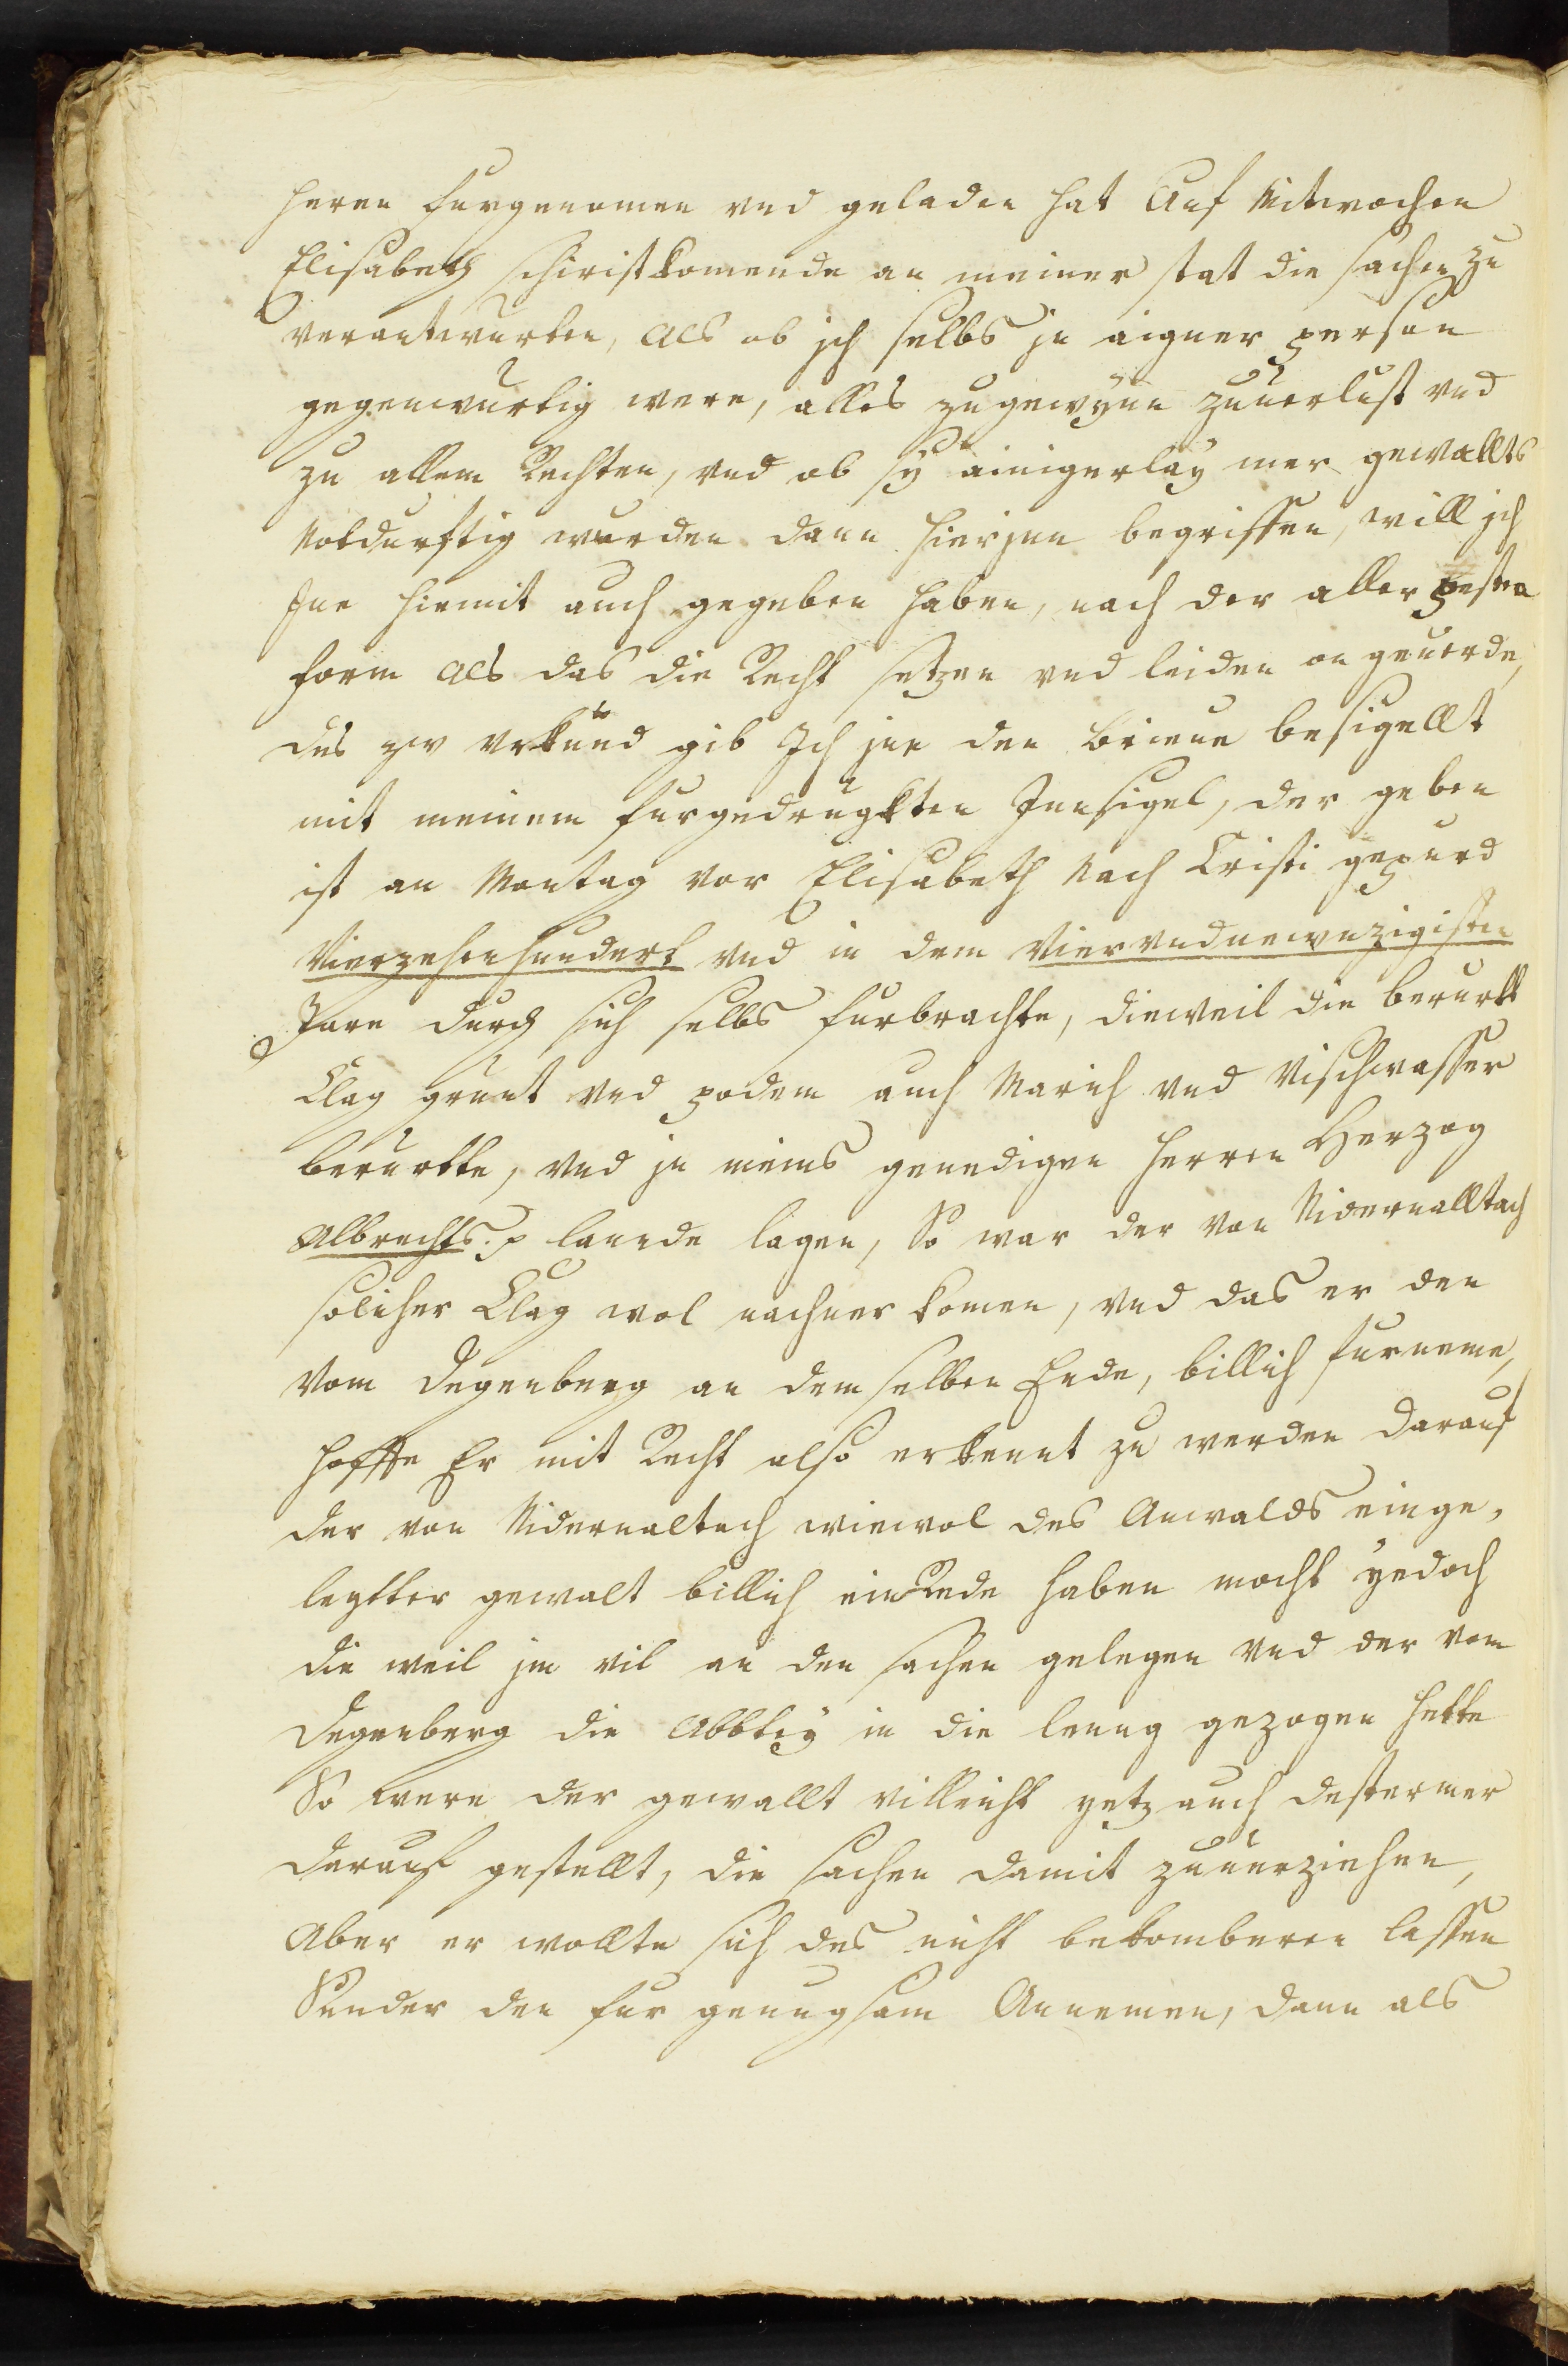 heren furgenomen vnd geladen hat Auf Mitwochen
Elisabeth schiristkomende an meiner stat die sachen zu
verantwurten, als ob jch selbs jn aigner person
gegenwurtig were, alles zugewynn zuuerlust vnd
zu allem Rechten, vnd ob sÿ ainigerlaÿ mer gewallts
Notdurftig wurden dann hierjnn begriffen, will jch
Jne hiemit auch gegeben haben, nach der aller pesten
form als das die Recht setzen vnd leiden on geuerde,
des zw vrkund gib Ich jne den brieue besigellt
mit meinem furgedrugkten Innsigel, der geben
ist an Montag vor Elisabeth Nach Cristi gepurd
Vierzehenhundert vnd in dem Viervndnewnzigisten
Jare durch sich selbs furbrachte, dieweil die berurtt
Clag grunt vnd podem auch March vnd Vischwasser
berurtte, vnd jn meins genedigen herren Herzog
Albrechts p lannde lagen, So war der von Nidernalltach
solicher Clag wol nachuer komen, vnd das er den
vom Degenberg an demselben Ende, billich furneme,
hoffte Er mit Recht also erkennt zu werden darauf
der von Nidernaltach wiewol des Anwalds einge,
legtter gewalt billich einRede haben mocht ÿedoch
die weil jm vil an den sachen gelegen vnd der vom
Degenberg die Abbteÿ in die lenng gezogen hette
So were der gewallt villeicht yetz auch destermer
darauf gestellt, die sachen damit zuuerziehen,
Aber er wollte sich des nicht bekomberen lassen
Sunder den fur genugsam Annemen, dann als